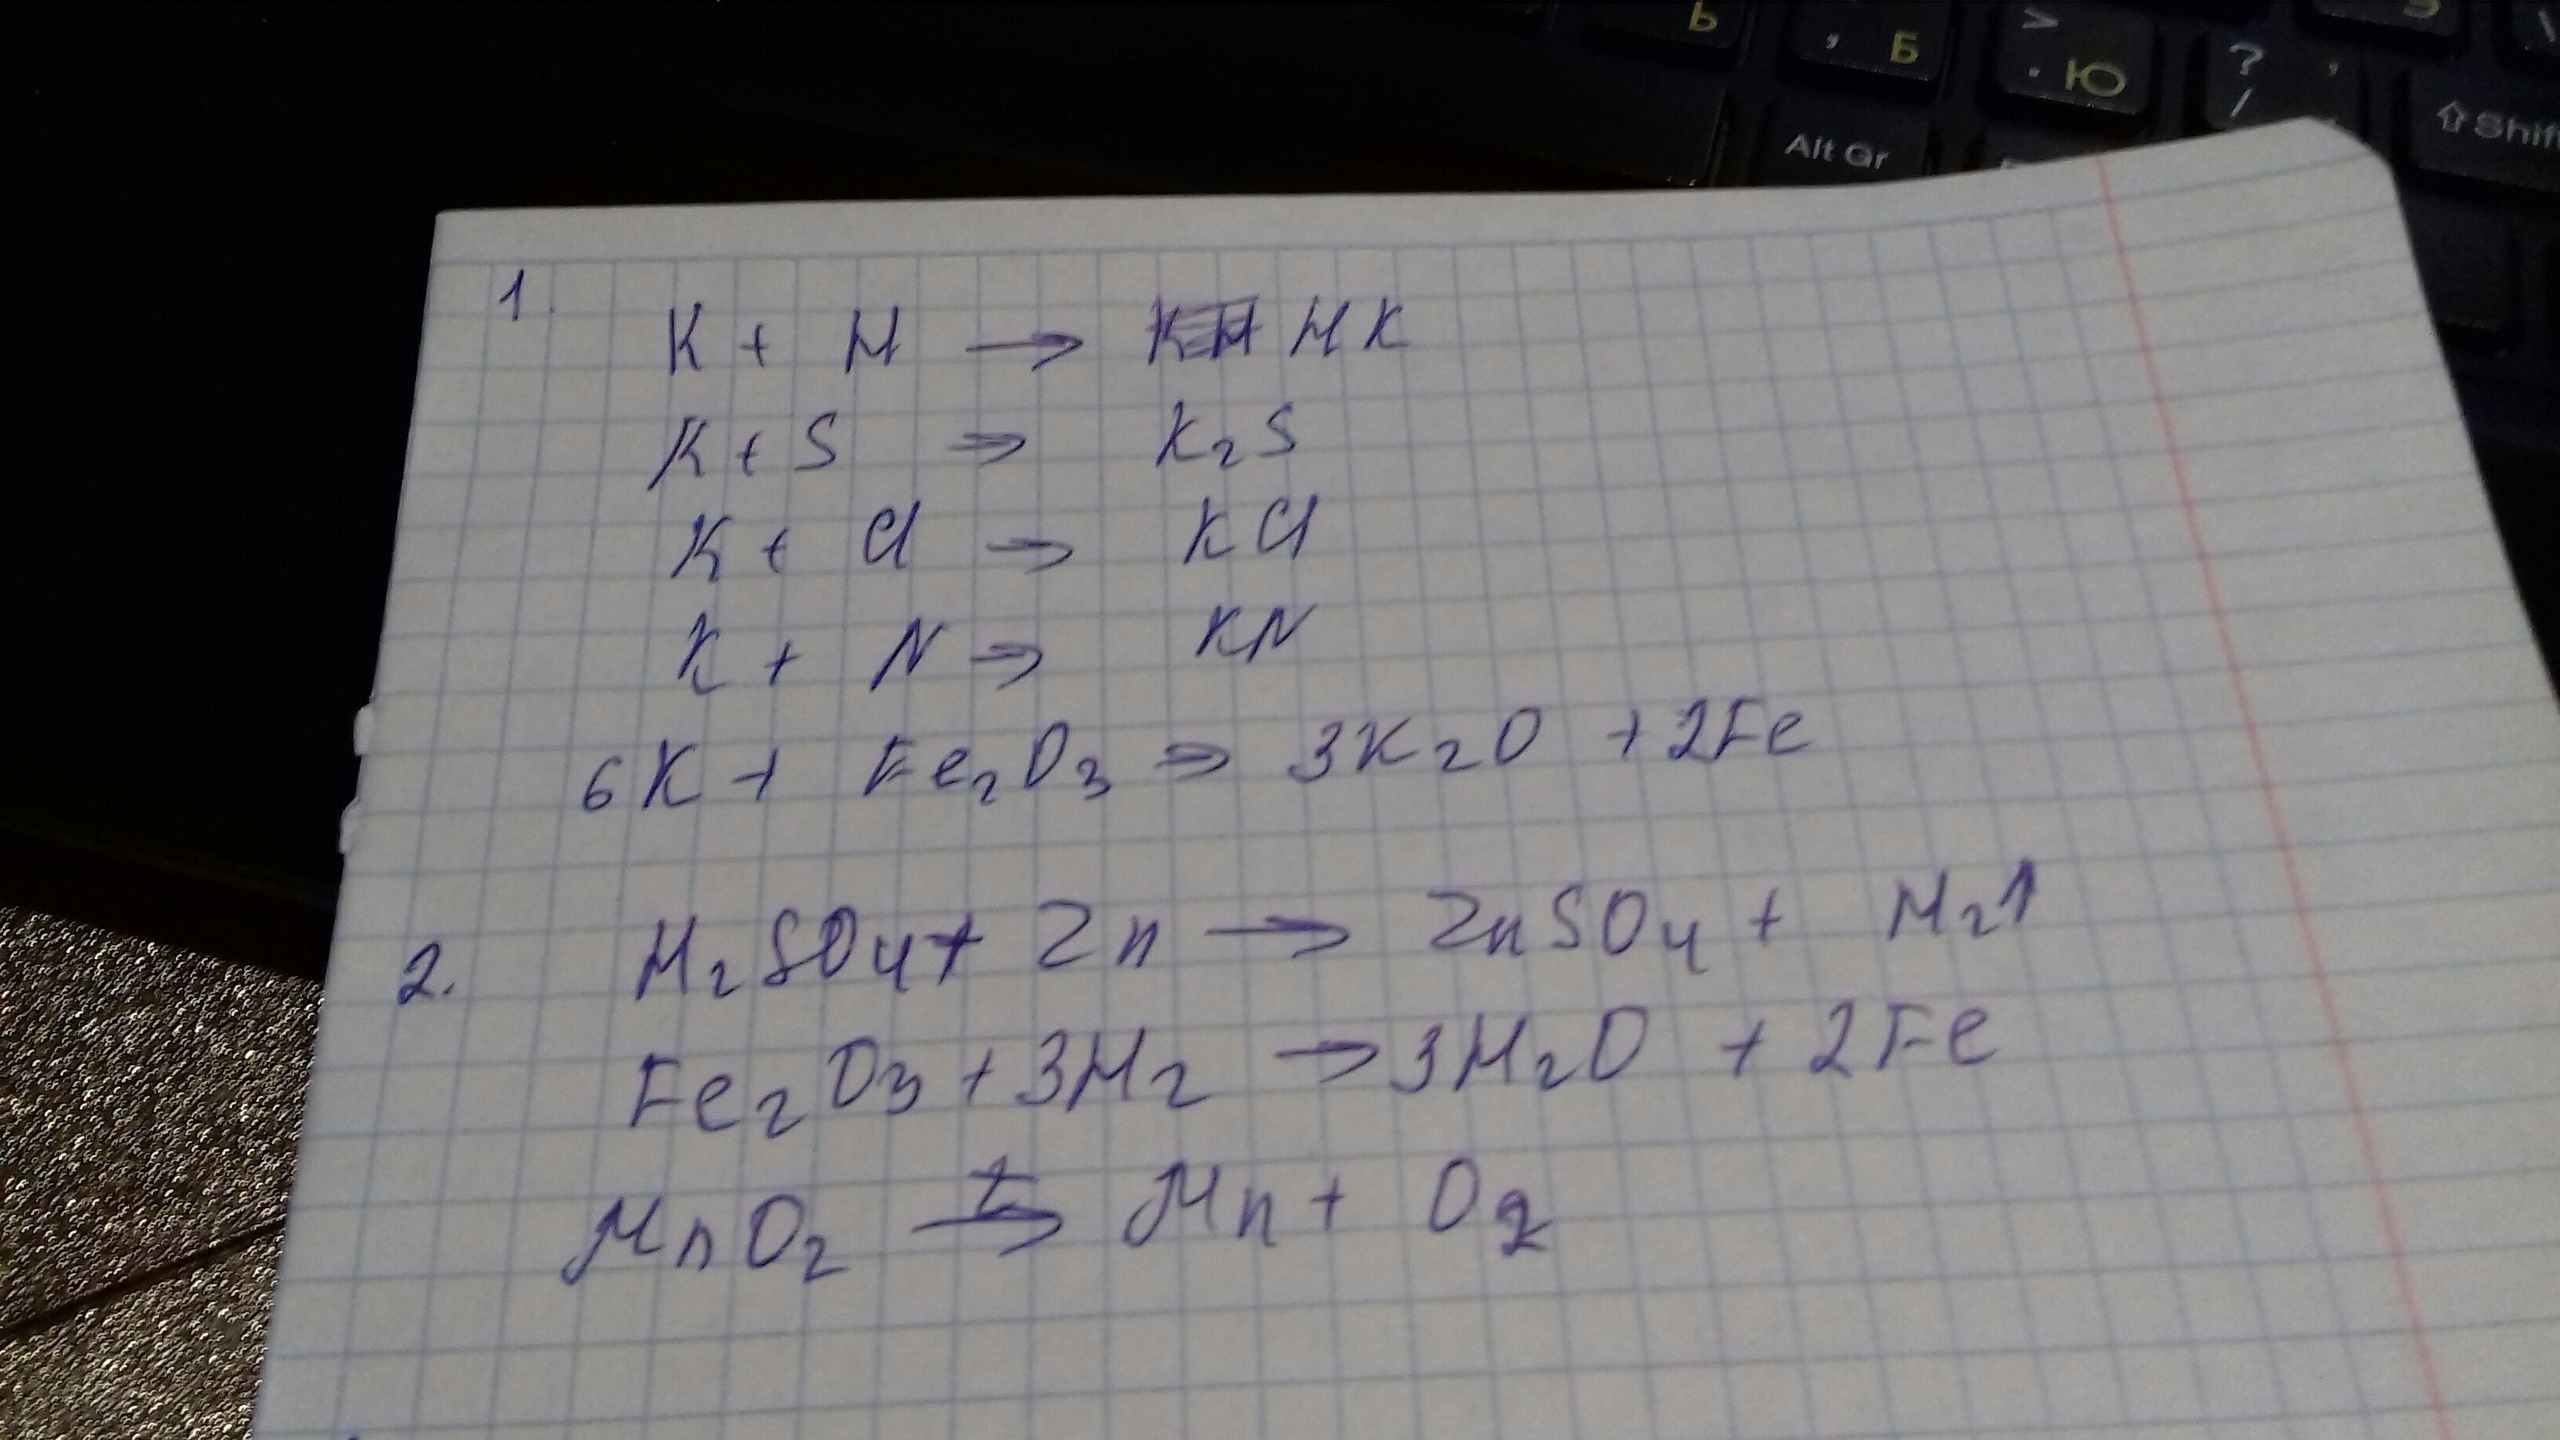 Ь
, Б
> . Ю
? / ,
Alt Gr
⇧Shift
1.
K + H → HK
K + S → K₂S
K + Cl → KCl
K + N → KN
6K + Fe₂O₃ → 3K₂O + 2Fe
2. H₂SO₄ + Zn → ZnSO₄ + H₂↑
Fe₂O₃ + 3H₂ → 3H₂O + 2Fe
MnO₂ →ᵗ Mn + O₂